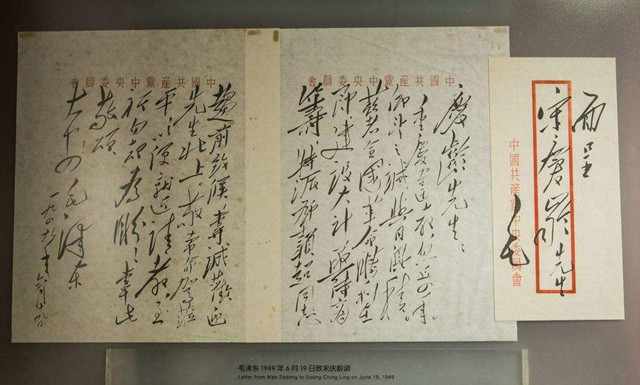 面呈
宋慶齡先生
毛
中國共産黨中央委員會
中國共産黨中央委員會
慶齡先生：
重慶違教，忽近四年。
仰望之誠，與日俱積。
茲者全國革命勝利在
即，建設大計，亟待商
籌，特派鄧穎超同志
中國共産黨中央委員會
趨前致候，專誠歡迎
先生北上。敬希命駕蒞
平，以便就近請教，至
祈勿却為盼！專此。
敬頌
大安！ 毛澤東
一九四九年六月十九日
毛泽东1949年6月19日致宋庆龄函
Letter from Mao Zedong to Soong Ching Ling on June 19, 1949